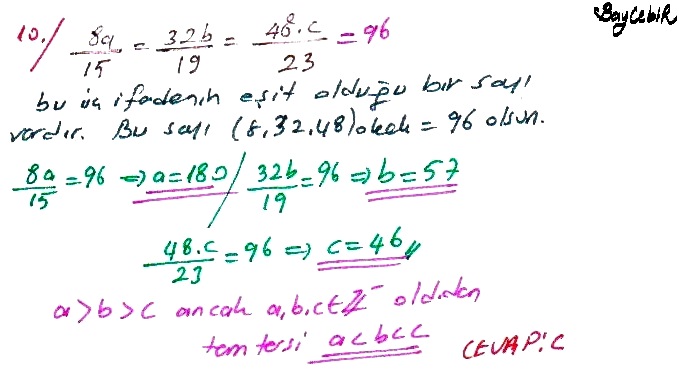 BayCebiR
10./ 8a/15 = 32b/19 = 48.c/23 = 96
bu üç ifadenin eşit olduğu bir sayı
vardır. Bu sayı (8,32,48)okek = 96 olsun.
8a/15 = 96 => a=180 / 32b/19 = 96 => b=57
48.c/23 = 96 => c=46//
a>b>c ancak a,b,c∈Z⁻ old.dan
tam tersi a<b<c CEVAP:C